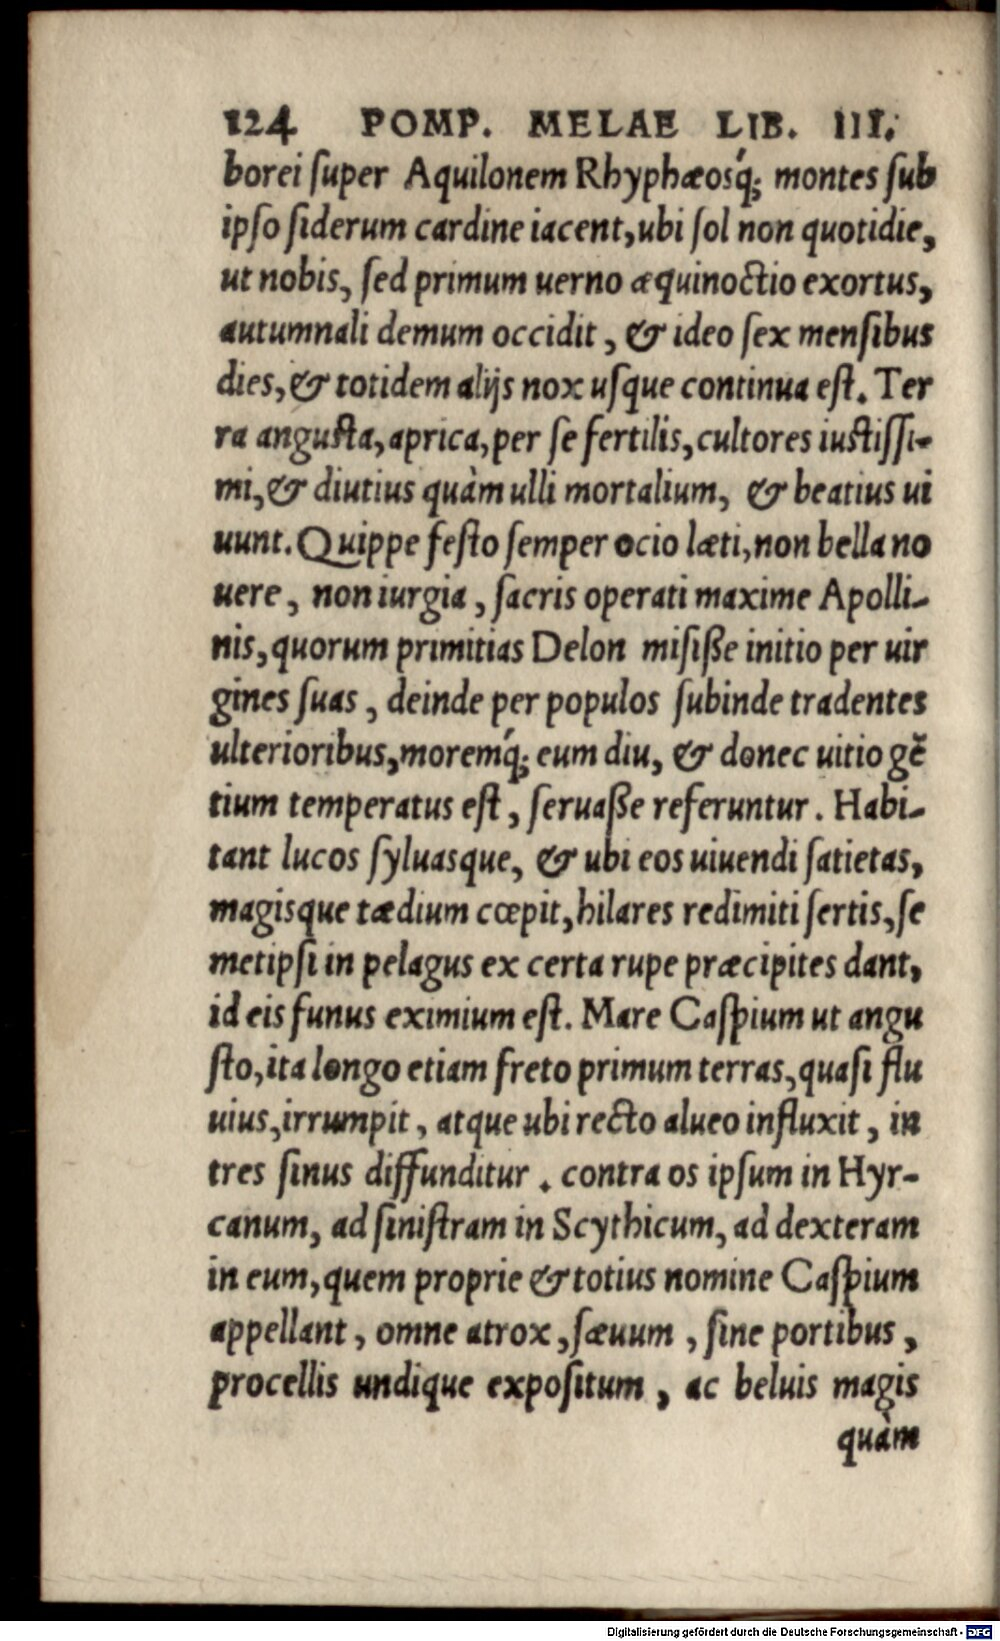 124 POMP. MELAE LIB. III.
borei ſuper Aquilonem Rhyphæosq́; montes ſub
ipſo ſiderum cardine iacent, ubi ſol non quotidie,
ut nobis, ſed primum uerno æquinoctio exortus,
autumnali demum occidit, & ideo ſex menſibus
dies, & totidem alijs nox uſque continua eſt. Ter
ra anguſta, aprica, per ſe fertilis, cultores iuſtiſſi-
mi, & diutius quàm ulli mortalium, & beatius ui
uunt. Quippe feſto ſemper ocio læti, non bella no
uere, non iurgia, ſacris operati maxime Apolli-
nis, quorum primitias Delon miſiße initio per uir
gines ſuas, deinde per populos ſubinde tradentes
ulterioribus, moremq́; eum diu, & donec uitio gẽ
tium temperatus eſt, ſeruaße referuntur. Habi-
tant lucos ſyluasque, & ubi eos uiuendi ſatietas,
magisque tædium cœpit, hilares redimiti ſertis, ſe
metipſi in pelagus ex certa rupe præcipites dant,
id eis funus eximium eſt. Mare Caſpium ut angu
ſto, ita longo etiam freto primum terras, quaſi flu
uius, irrumpit, atque ubi recto alueo influxit, in
tres ſinus diffunditur. contra os ipſum in Hyr-
canum, ad ſiniſtram in Scythicum, ad dexteram
in eum, quem proprie & totius nomine Caſpium
appellant, omne atrox, ſæuum, ſine portibus,
procellis undique expoſitum, ac beluis magis
quàm
Digitalisierung gefördert durch die Deutsche Forschungsgemeinschaft - DFG